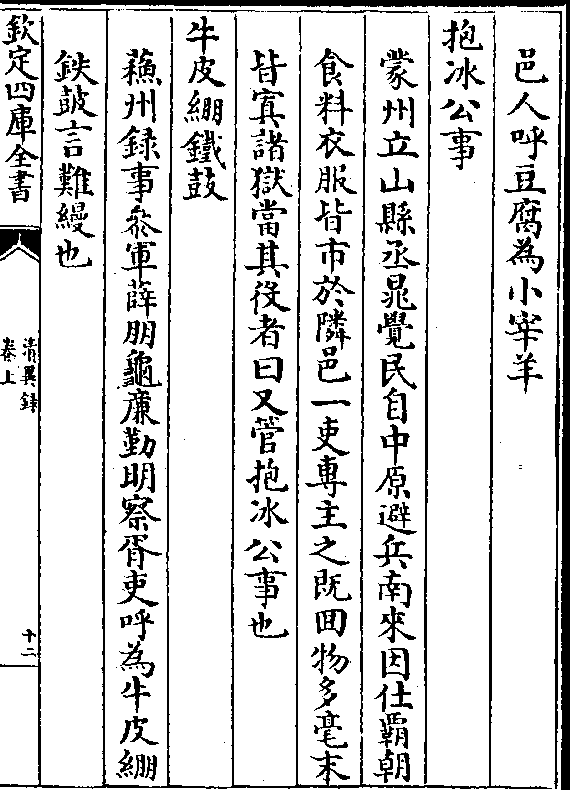 邑人呼豆腐為小宰羊
抱冰公事
蒙州立山縣丞晁覺民自中原避兵南來因仕霸朝
食料衣服皆市於隣邑一吏專主之既囬物多毫末
皆寘諸獄當其役者曰又管抱冰公事也
牛皮繃鐵鼓
蘓州録事叅軍薛朋龜亷勤明察胥吏呼為牛皮繃
鉄鼓言難縵也
欽定四庫全書
清異録
卷上
十二